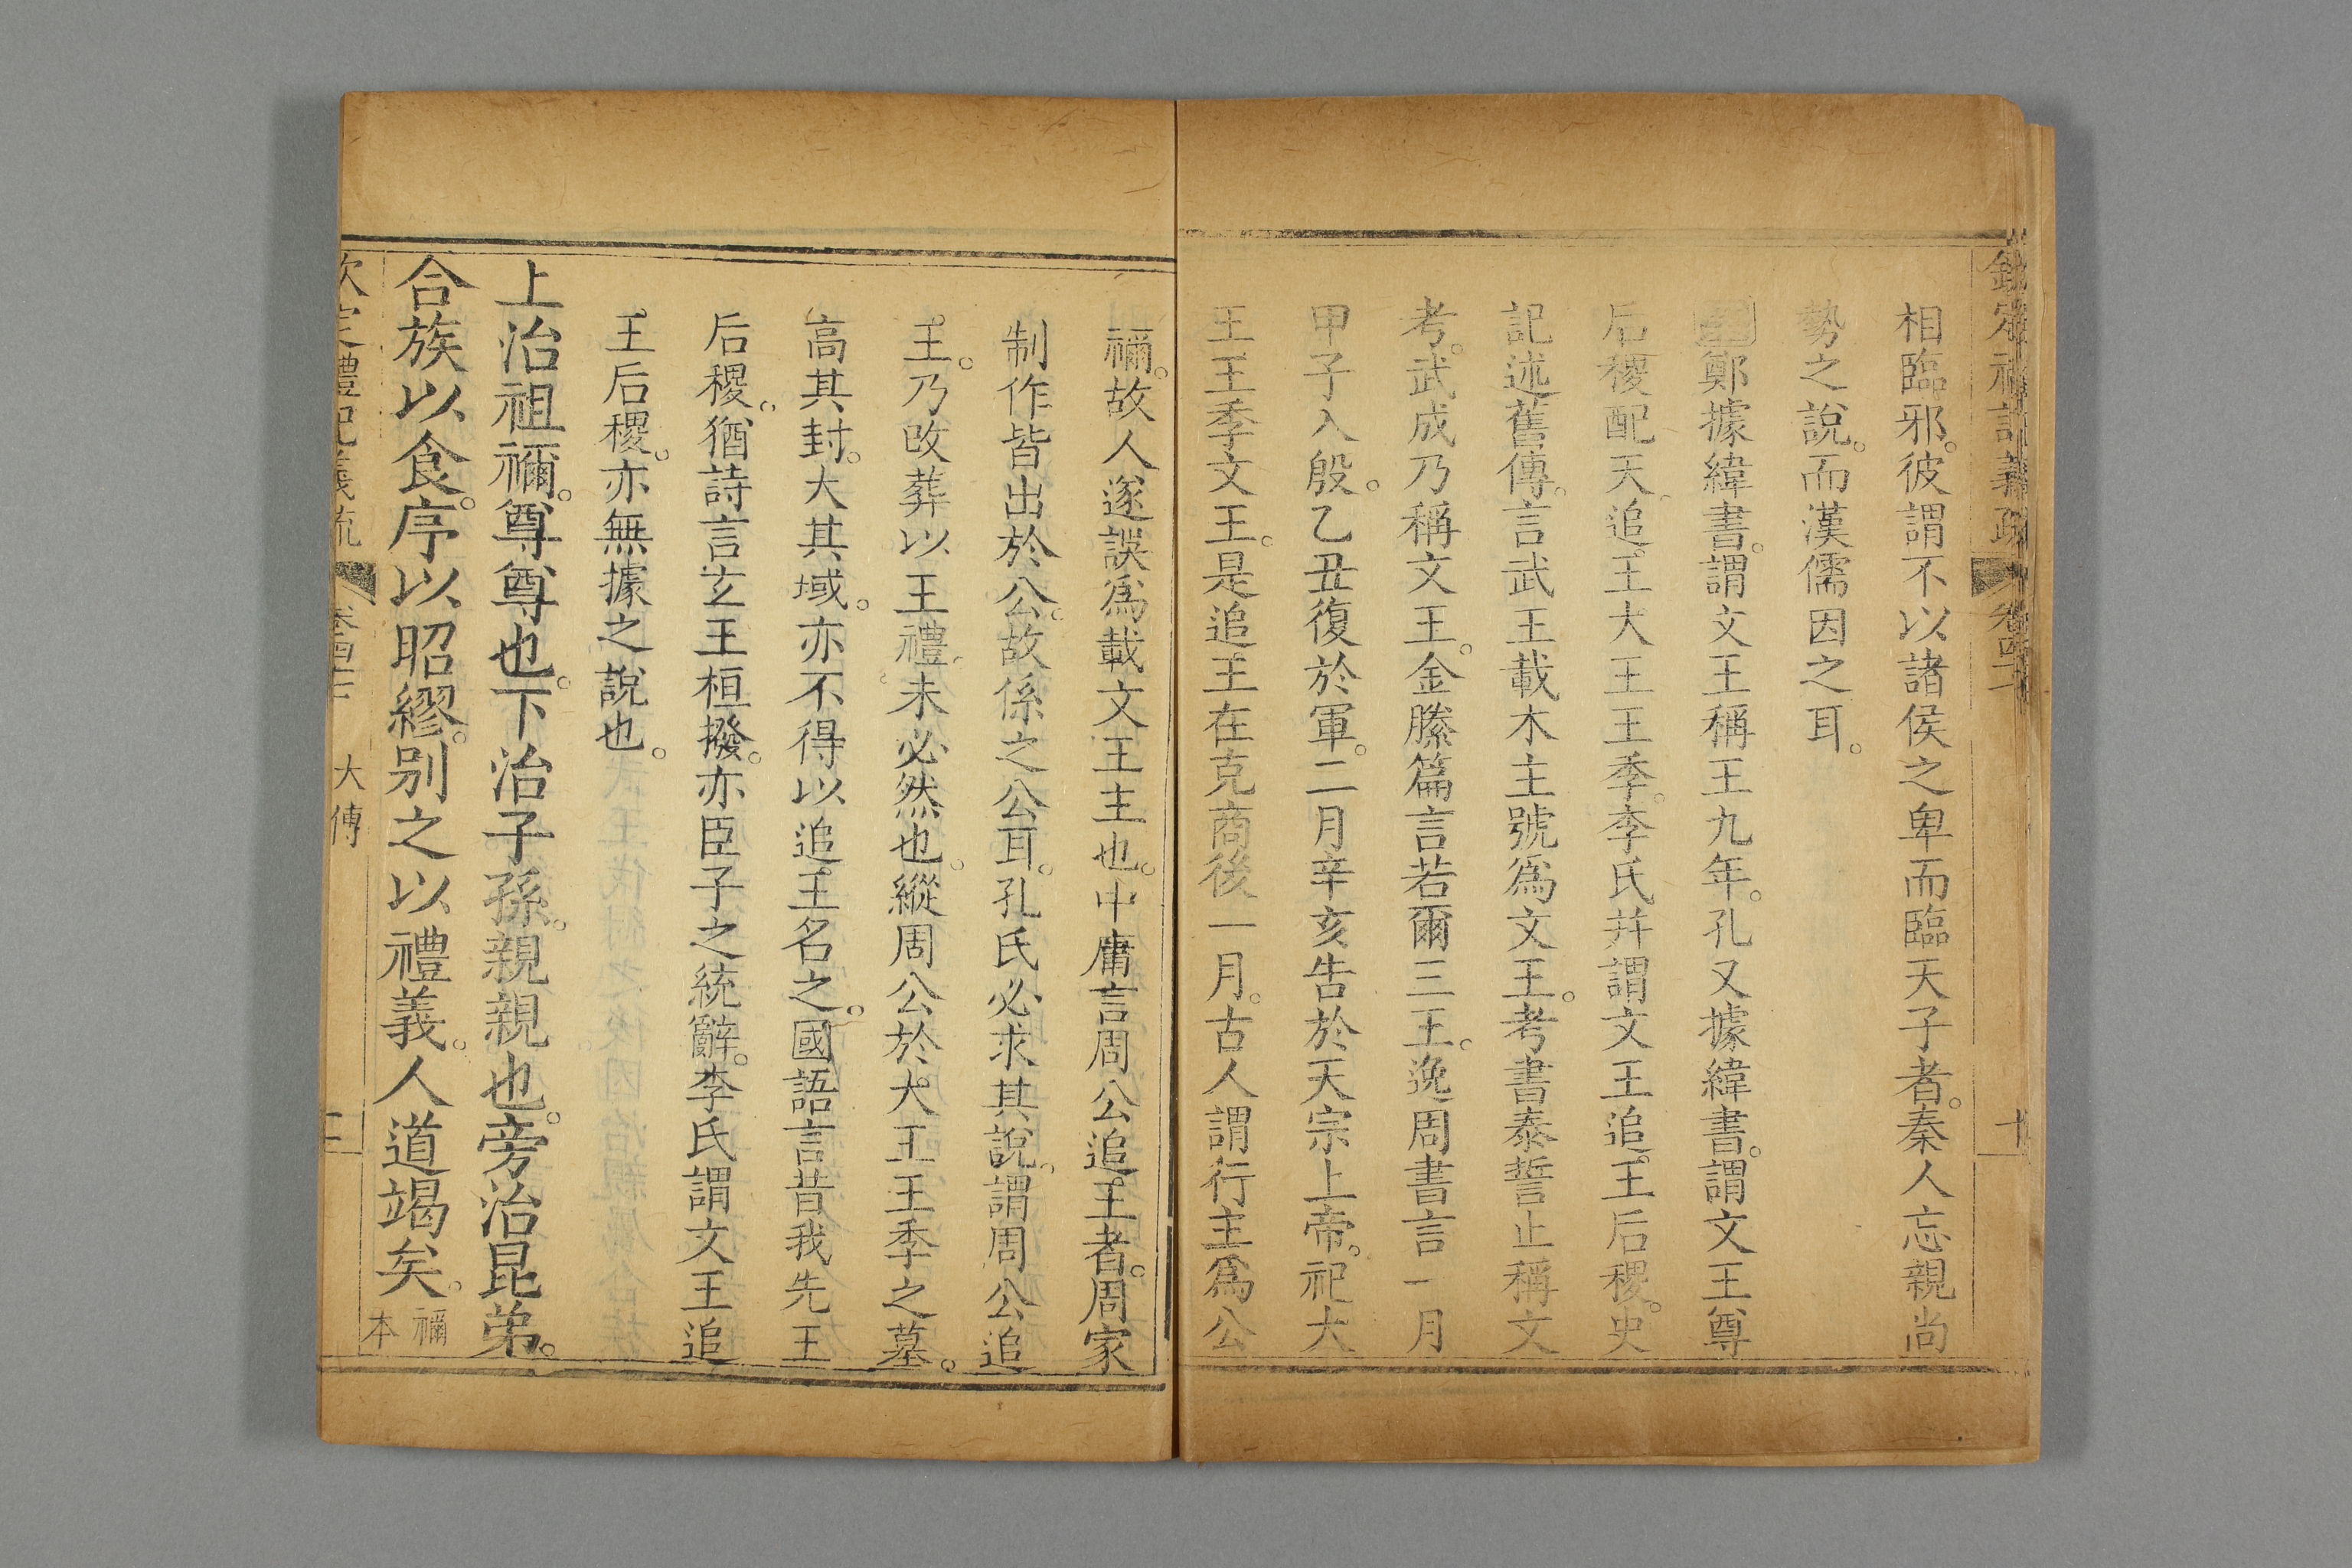 欽定禮記義疏 卷四十二 十
相臨邪。彼謂不以諸侯之卑而臨天子者。秦人忘親尚
勢之說。而漢儒因之耳。
鄭據緯書。謂文王稱王九年。孔又據緯書。謂文王尊
后稷配天。追王大王王季。李氏幷謂文王追王后稷。史
記述舊傳。言武王載木主號爲文王。考書泰誓止稱文
考。武成乃稱文王。金縢篇言若爾三王。逸周書言一月
甲子入殷。乙丑復於軍。二月辛亥告於天宗上帝。祀大
王王季文王。是追王在克商後一月。古人謂行主爲公
禰。故人遂誤爲載文王主也。中庸言周公追王者。周家
制作皆出於公。故係之公耳。孔氏必求其說。謂周公追
王。乃改葬以王禮。未必然也。縱周公於大王王季之墓。
高其封。大其域。亦不得以追王名之。國語言昔我先王
后稷。猶詩言玄王桓撥。亦臣子之統辭。李氏謂文王追
王后稷。亦無據之說也。
上治祖禰。尊尊也。下治子孫。親親也。旁治昆弟。
合族以食。序以昭繆。別之以禮義。人道竭矣。禰
本
欽定禮記義疏 卷四十二 大傳